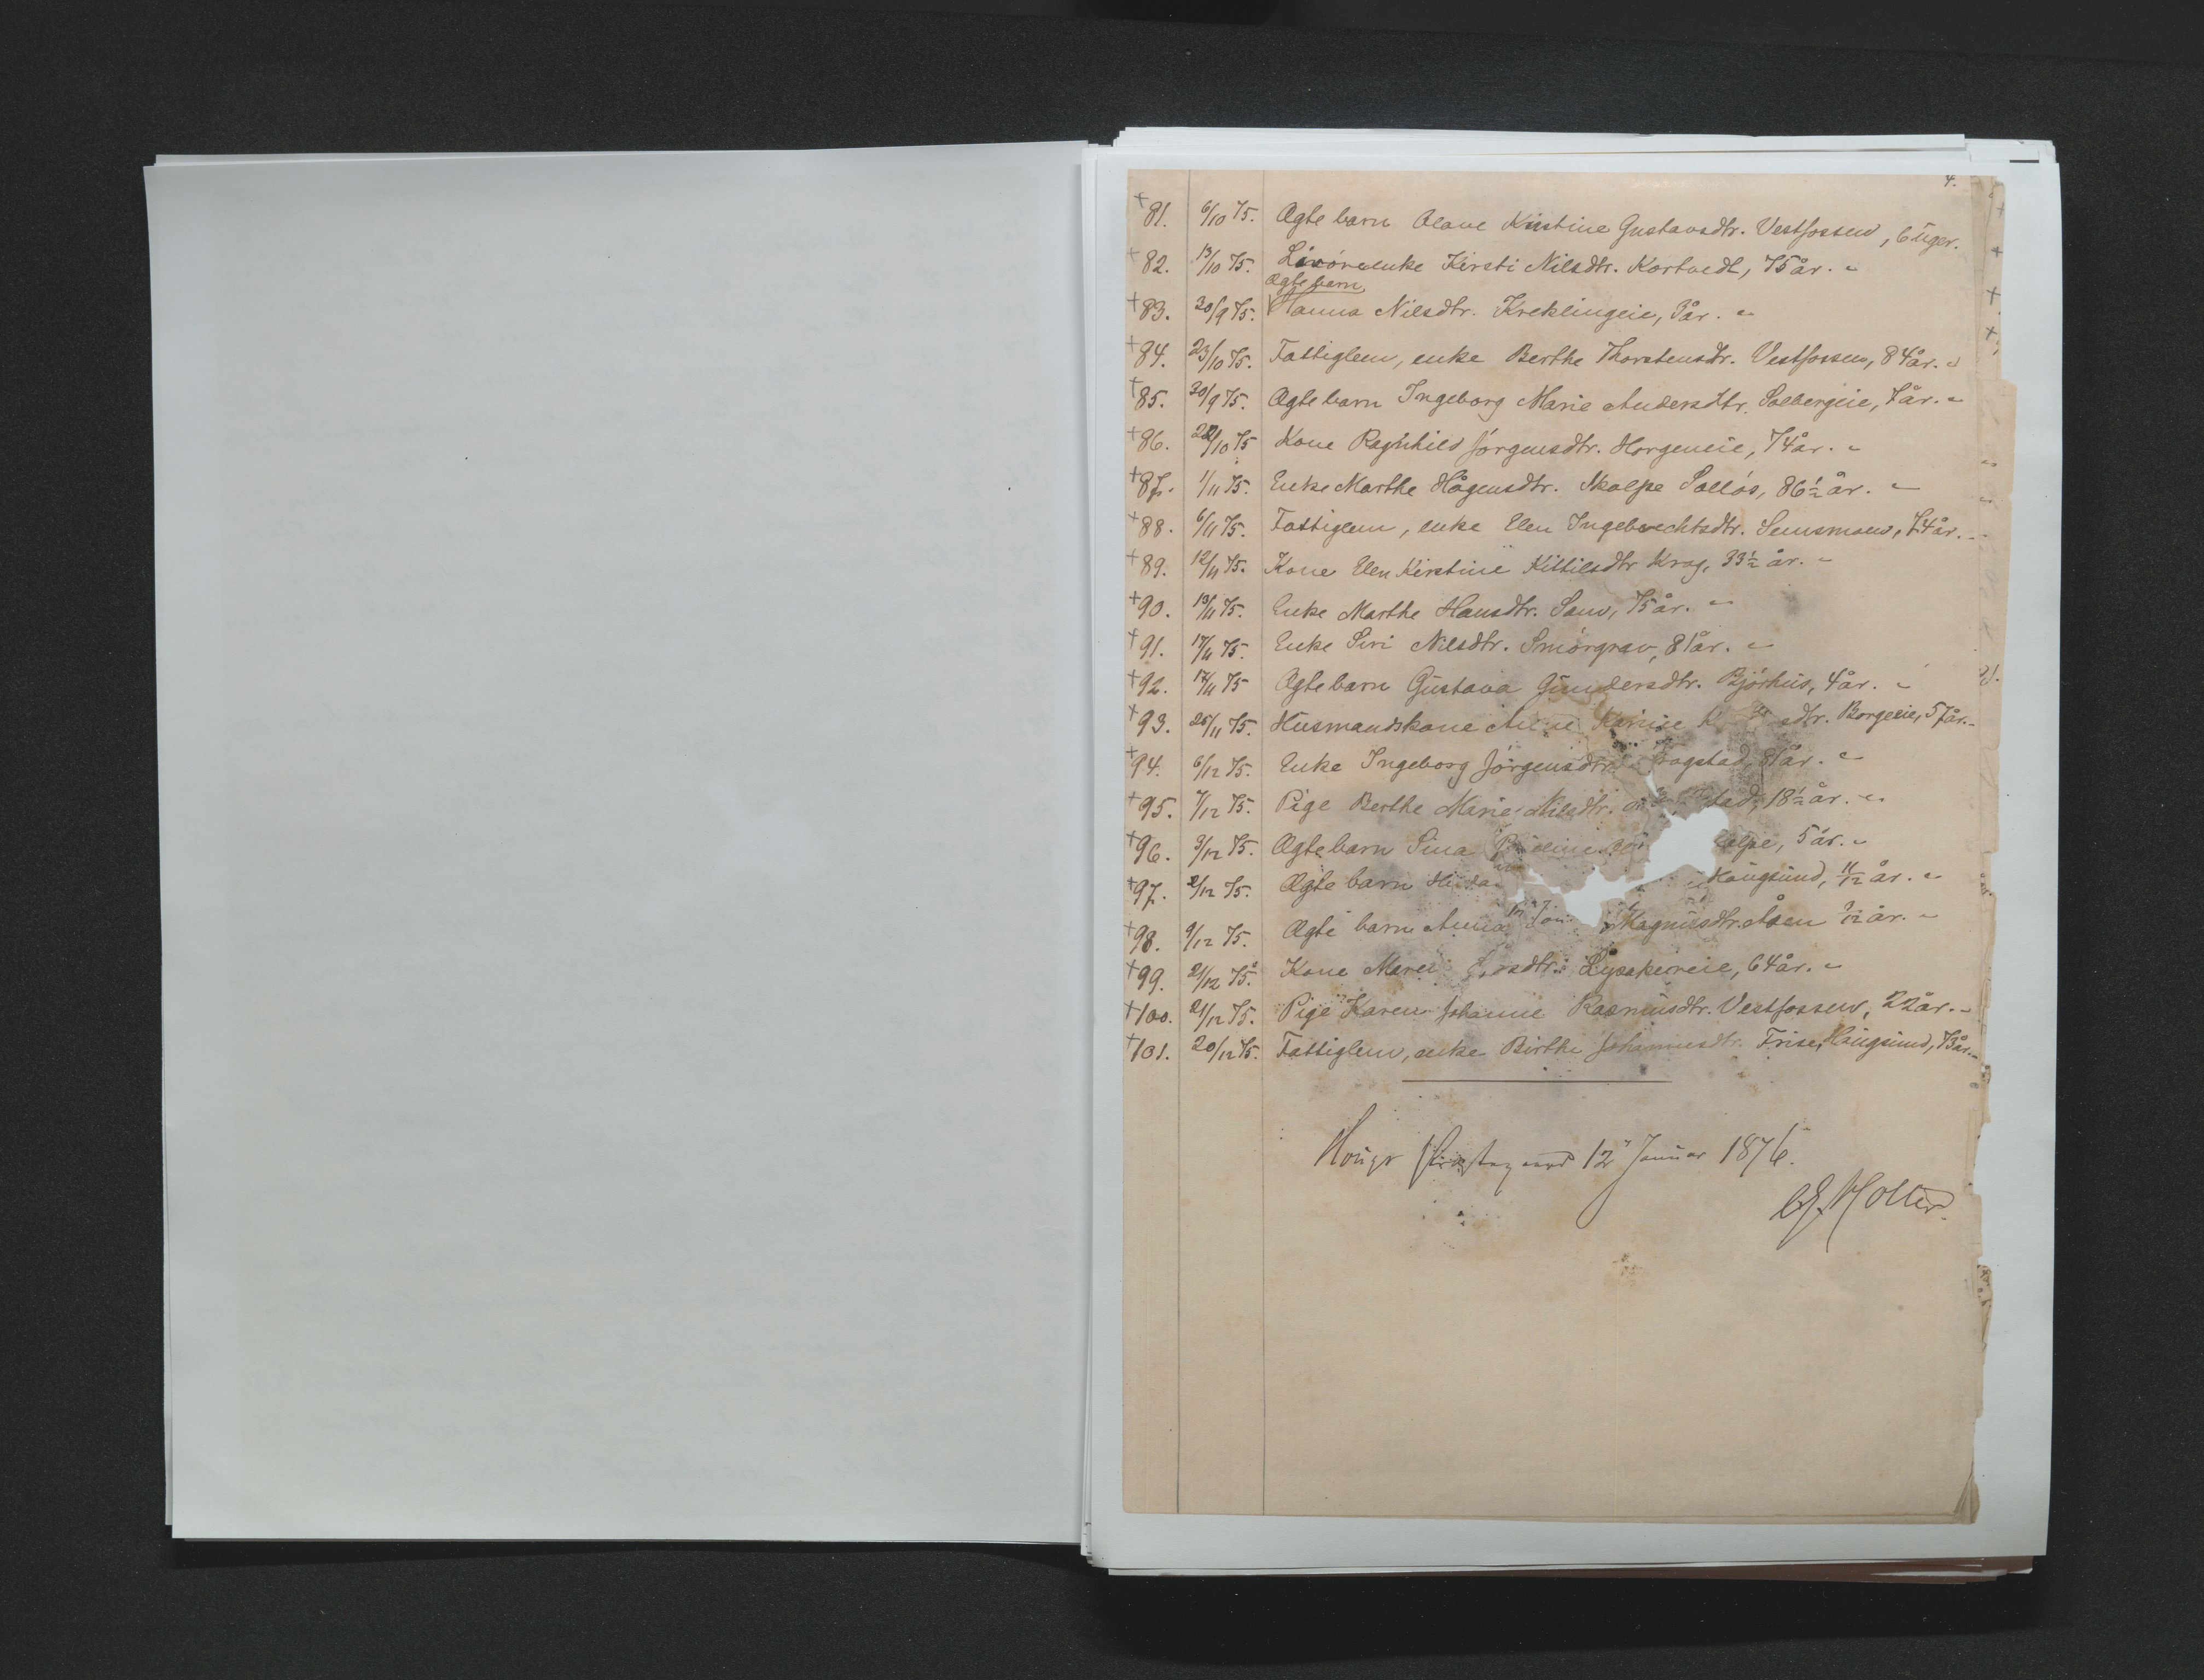 4.
+81. 6/10 75. Ægte barn Olave Kristine Gustavsdtr. Vestfossen, 6 uger.
+82. 13/10 75. Livøreenke Kirsti Nilsdtr. Kortvedt, 75 år. "
Ægte barn
+83. 30/9 75. Hanna Nilsdtr. Kreklingeie, 3 år. "
+84. 23/10 75. Fattiglem, enke Berthe Thorstensdtr. Vestfossen, 84 år. "
+85. 30/9 75. Ægte barn Ingeborg Marie Andersdtr. Solbergeie, 7 år. "
+86. 28/10 75 Kone Ragnhild Jørgensdtr. Horgeneie, 74 år. "
+87. 1/11 75. Enke Marthe Hågensdtr. Skalpe Solløs, 86 1/2 år. "
+88. 6/11 75. Fattiglem, enke Elen Ingebrechtsdtr. Semsmoen, 74 år. "
+89. 12/11 75. Kone Elen Kirstine Kittilsdtr Krag, 33 1/2 år. "
+90. 13/11 75. Enke Marthe Hansdtr. Sand, 75 år. "
+91. 17/11 75. Enke Siri Nilsdtr. Smørgrav, 81 år. "
+92. 17/11 75 Ægte barn Gustava Gundersdtr. Bjørhus, 4 år. "
+93. 25/11 75. Husmandskone Karine sdtr. Borgeeie, 57 år. "
+94. 6/12 75. Enke Ingeborg Jørgensdtr. rogstad, 81 år. "
+95. 7/12 75. Pige Berthe Marie Nilsdtr. stad, 18 1/2 år. "
+96. 3/12 75. Ægte barn Sina alpe, 5 år. "
+97. 2/12 75. Ægte barn Hougsund, 11/12 år. "
+98. 9/12 75. Ægte barn Anna Magnusdtr. Åsen 9/12 år. "
+99. 21/12 75. Kone Maren Larsdtr. Lysakereie, 64 år. "
+100. 21/12 75. Pige Karen Johanne Rasmusdtr. Vestfossen, 22 år. "
+101. 20/12 75. Fattiglem, enke Birthe Johannesdtr. Frise, Hougsund, 73 år. "
Hougs Præstegaard 12 Januar 1876.
Holter